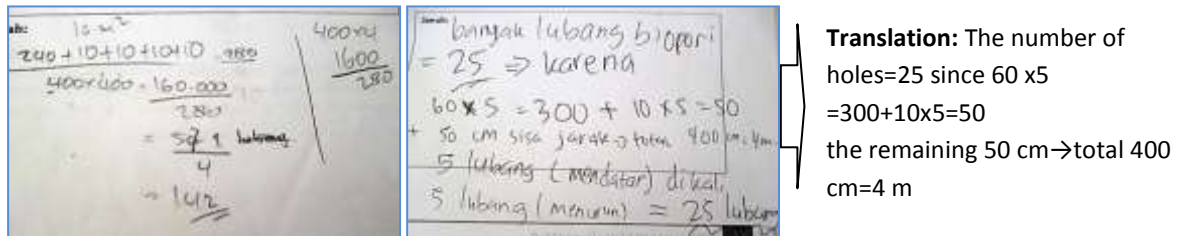 ab: 10 m²
240+10+10+10+10 = 280
400x400 = 160.000
280
=
4
= 142
400x4
1600
280
Jawab: banyak lubang biopori
= 25 ⇒ karena
60 x 5 = 300 + 10 x 5 = 50
+ 50 cm sisa jarak → total 400 cm = 4m
5 lubang (mendatar) dikali
5 lubang (menurun) = 25 lubang
Translation: The number of
holes=25 since 60 x5
=300+10x5=50
the remaining 50 cm→total 400
cm=4 m